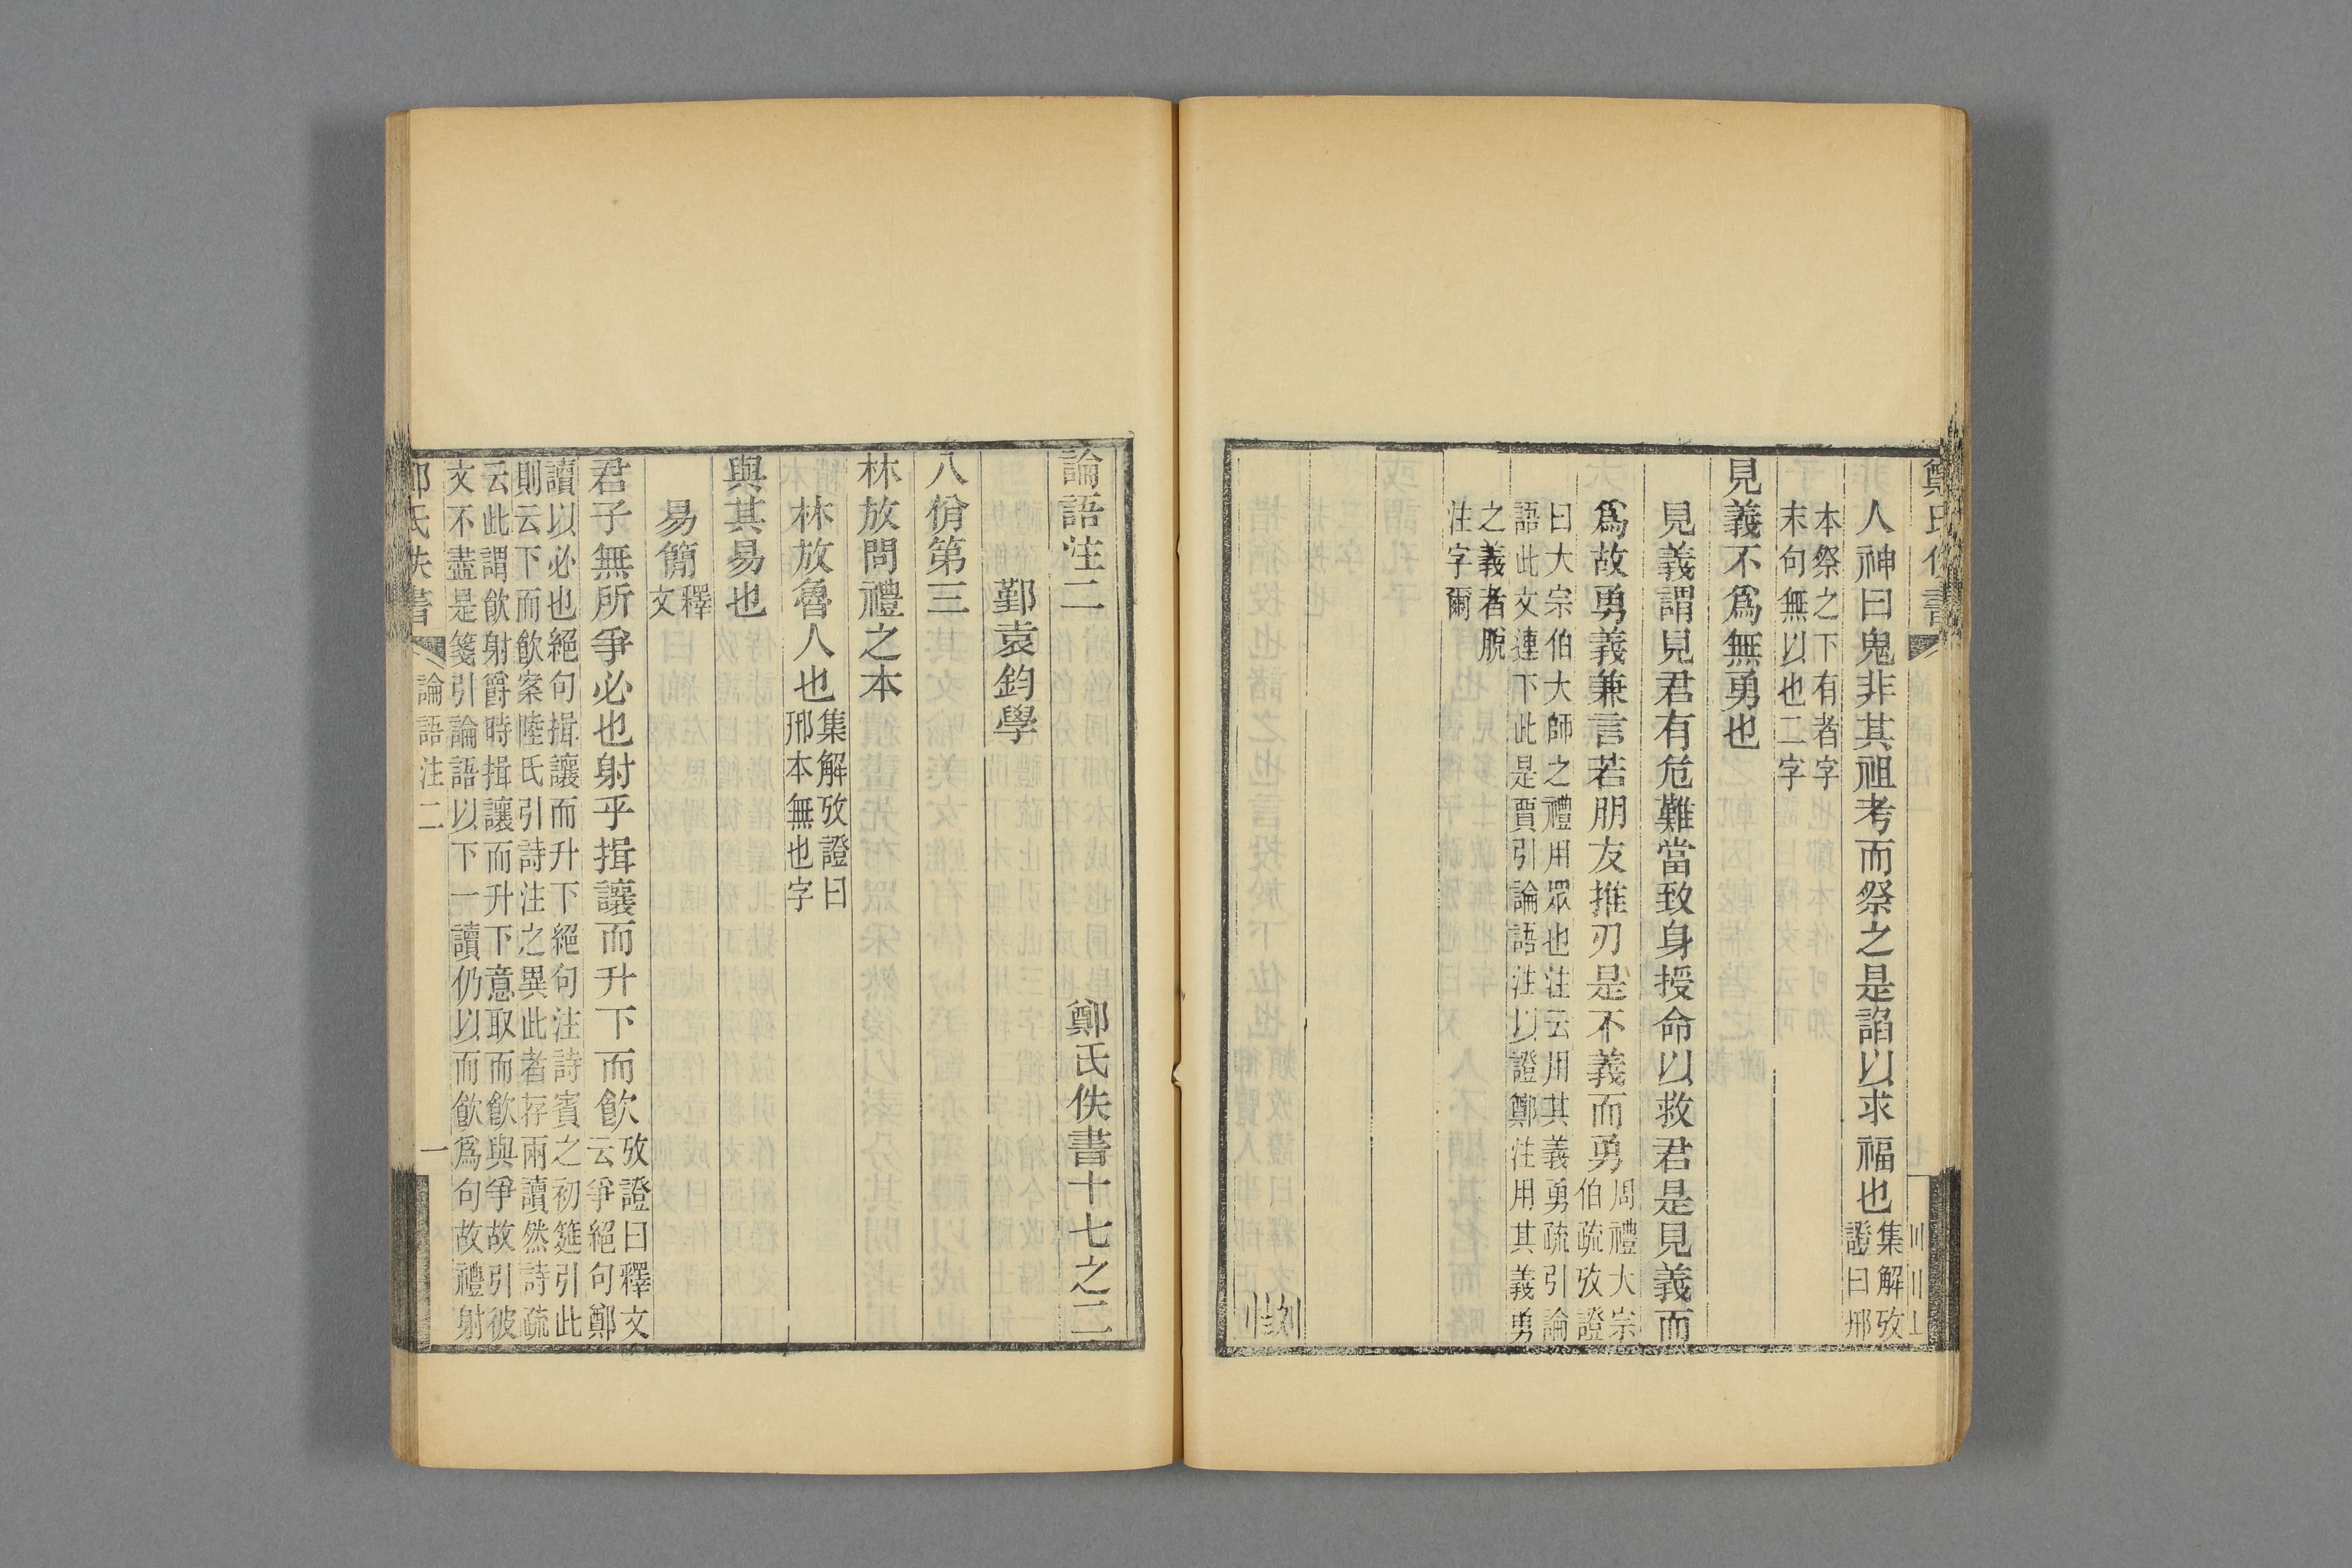 人神曰鬼非其祖考而祭之是諂以求福也集解攷證曰邢
本祭之下有者字末句無以也二字
見義不爲無勇也
見義謂見君有危難當致身授命以救君是見義而
爲故勇義兼言若朋友推刃是不義而勇周禮大宗伯疏攷證
曰大宗伯大師之禮用眾也注云用其義勇疏引論語此文連下此是賈引論語注以證鄭注用其義勇
之義者脫注字爾
論語注二 鄭氏佚書十七之二
鄞袁鈞學
八佾第三
林放問禮之本
林放魯人也集解攷證曰邢本無也字
與其易也
易簡釋文
君子無所爭必也射乎揖讓而升下而飲攷證曰釋文云爭絕句鄭
讀以必也絕句揖讓而升下絕句注詩賓之初筵引此則云下而飲案陸氏引詩注之異此者存兩讀然詩疏
云此謂飲射爵時揖讓而升下意取而飲與爭故引彼文不盡是箋引論語以下一讀仍以而飲爲句故禮射
氏佚書 論語注二 一